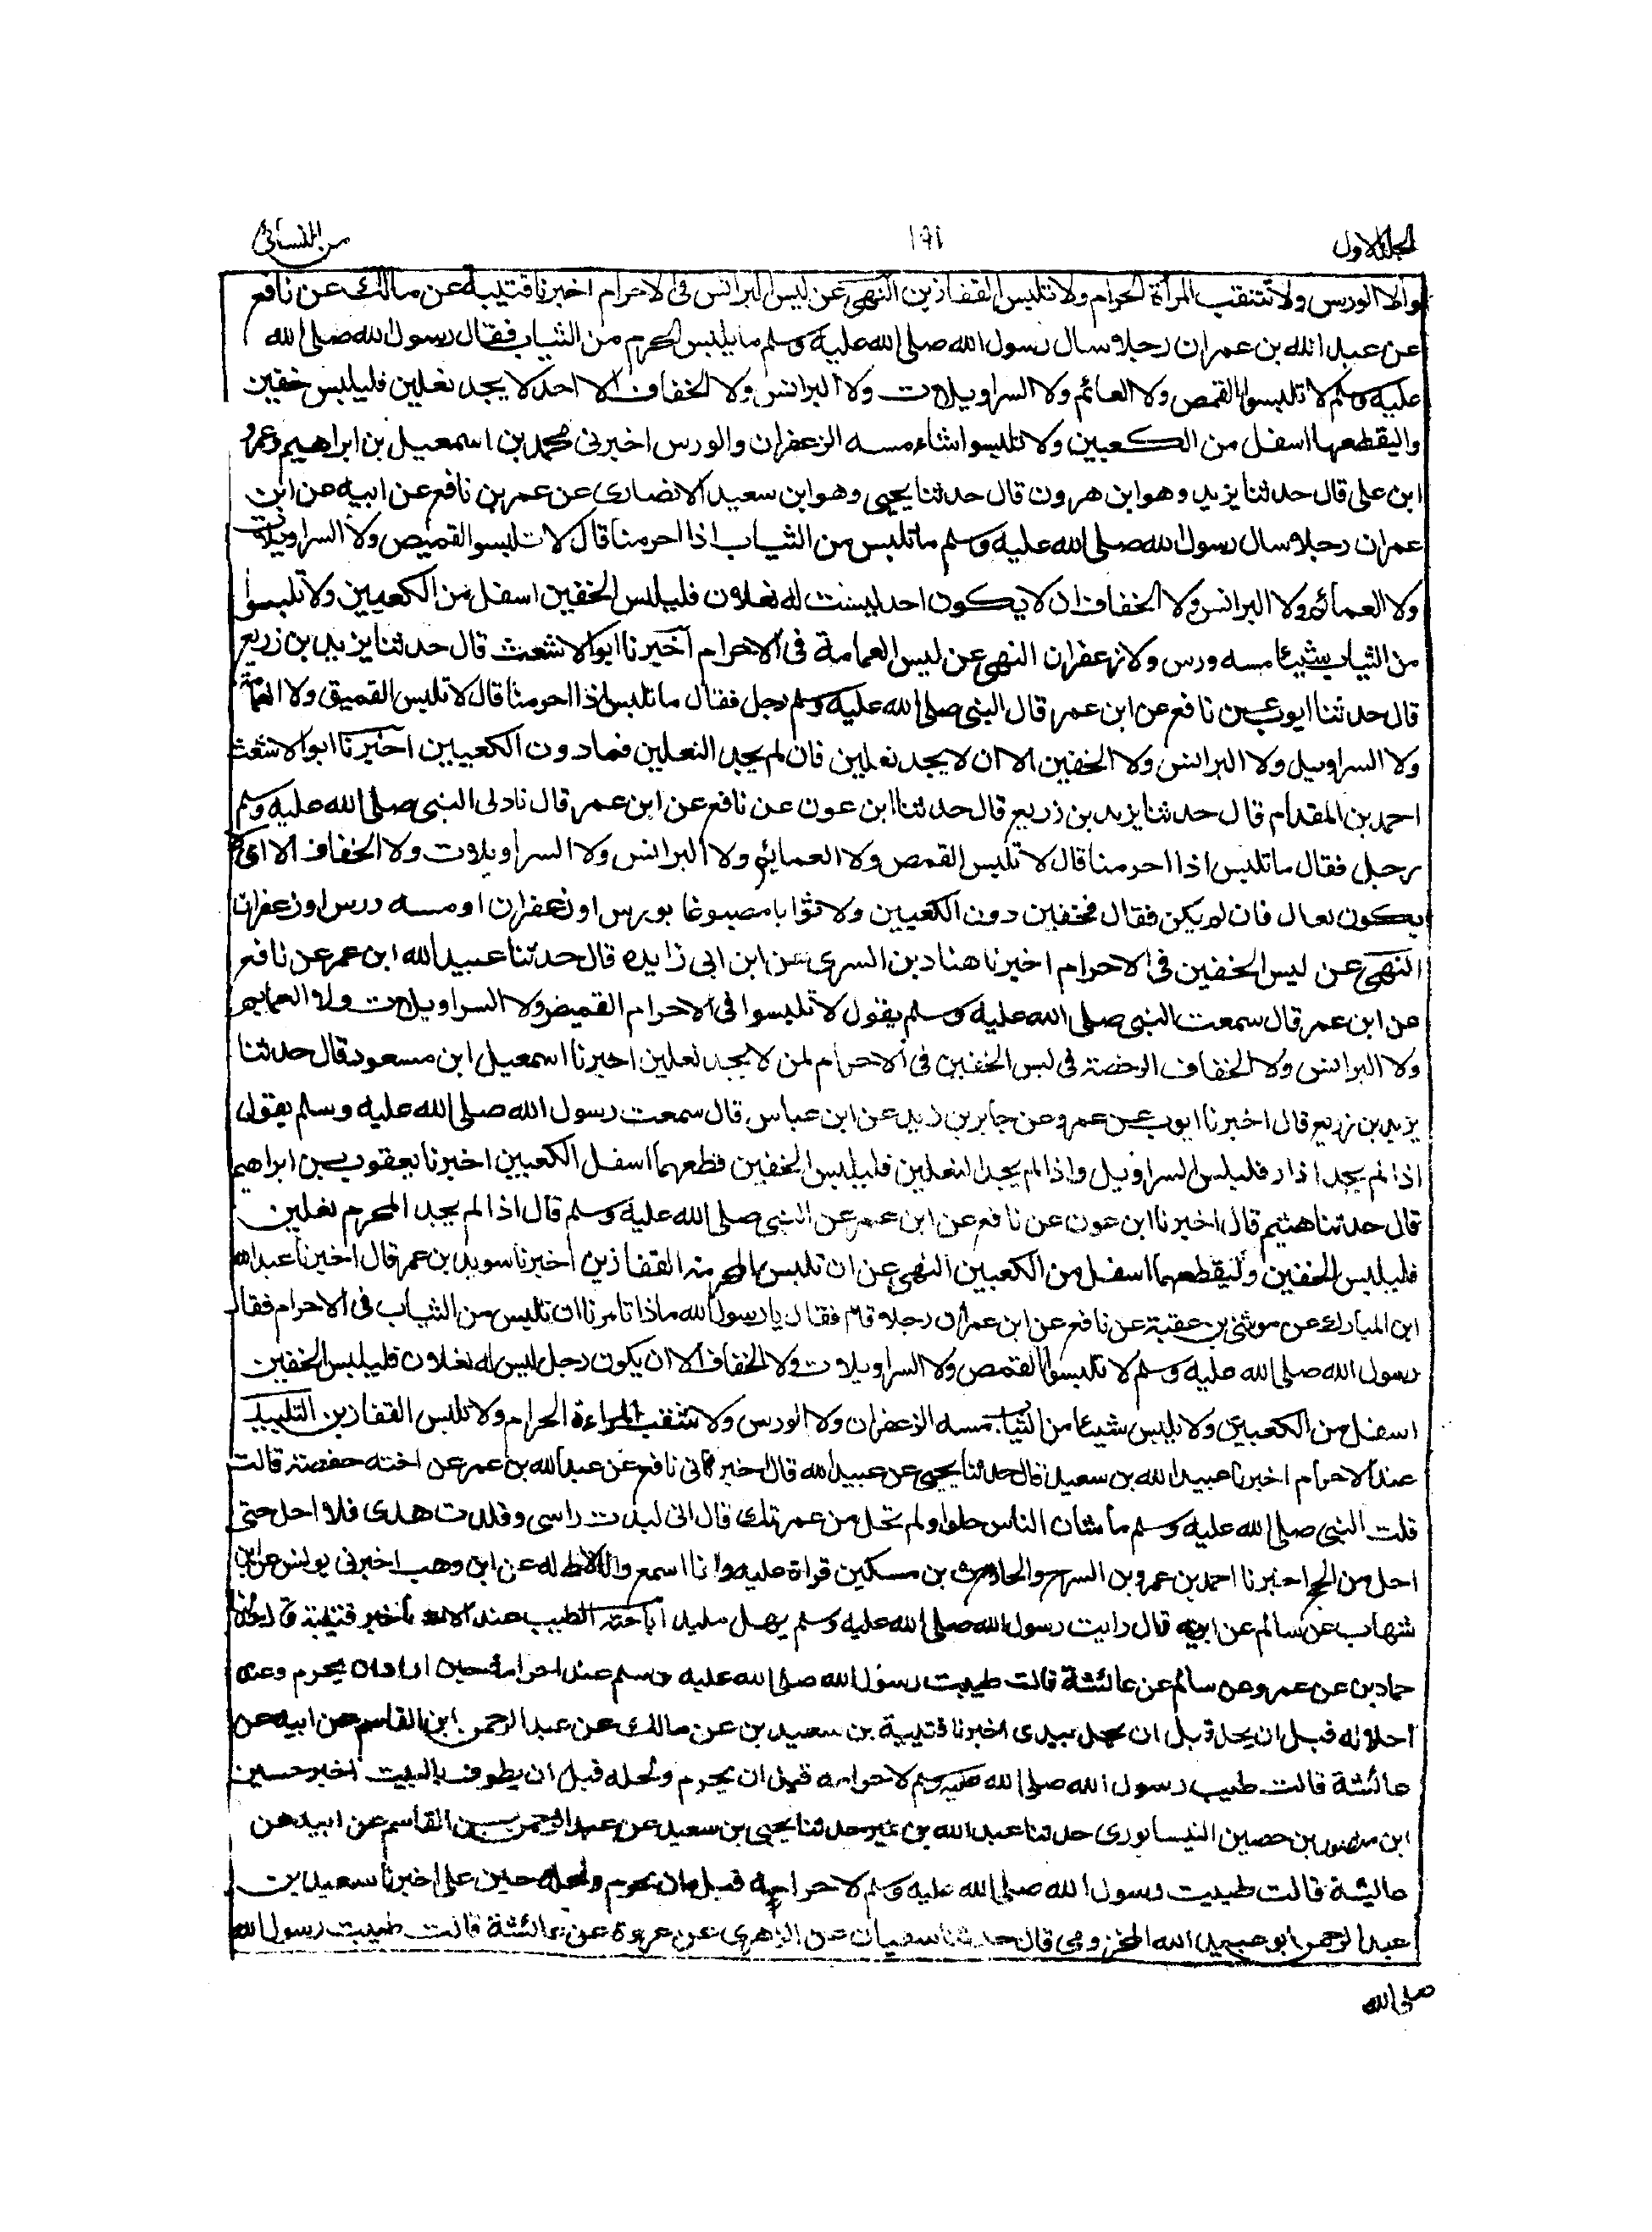 الجلد الاول
١٩١
من النسائى
ولا الورس ولا تتنقب المرأة الحرام ولا تلبس القفازين النهى عن لبس البرانس فى الاحرام اخبرنا قتيبة عن مالك عن نافع
عن عبد الله بن عمر ان رجلا سال رسول الله صلى الله عليه وسلم ما يلبس المحرم من الثياب فقال رسول الله صلى الله
عليه وسلم لا تلبسوا القمص ولا العمائم ولا السراويلات ولا البرانس ولا الخفاف الا احد لا يجد نعلين فليلبس خفين
واليقطعها اسفل من الكعبين ولا تلبسوا شاء مسه الزعفران والورس اخبرنى محمد بن اسمعيل بن ابراهيم وعمرو
ابن على قال حدثنا يزيد وهو ابن هرون قال حدثنا يحيى وهو ابن سعيد الانصارى عن عمر بن نافع عن ابيه عن ابن
عمر ان رجلا سال رسول الله صلى الله عليه وسلم ما تلبس من الثياب اذا احرمنا قال لا تلبسوا القميص ولا السراويلات
ولا العمائم ولا البرانس ولا الخفاف ان لا يكون احد ليست له نعلان فليلبس الخفين اسفل من الكعبين ولا تلبسوا
من الثياب شيئا مسه ورس ولا زعفران النهى عن لبس العمامة فى الاحرام اخبرنا ابو الاشعث قال حدثنا يزيد بن زريع
قال حدثنا ايوب عن نافع عن ابن عمر قال النبى صلى الله عليه وسلم رجل فقال ما تلبس اذا احرمنا قال لا تلبس القميق ولا العمامة
ولا السراويل ولا البرانس ولا الخفين الا ان لا يجد نعلين فان لم يجد النعلين فما دون الكعبين اخبرنا ابو الاشعث
احمد بن المقدام قال حدثنا يزيد بن زريع قال حدثنا ابن عون عن نافع عن ابن عمر قال نادى النبى صلى الله عليه وسلم
رجل فقال ما تلبس اذا احرمنا قال لا تلبس القمص ولا العمايم ولا البرانس ولا السراويلات ولا الخفاف الا ان
يكون نعال فان لم يكن فقال فخفين دون الكعبين ولا ثوابا مصبوغا بورس او زعفران او مسه ورس او زعفران
النهى عن لبس الخفين فى الاحرام اخبرنا هناد بن السرى عن ابن ابى زايده قال حدثنا عبيد الله ابن عمر عن نافع
عن ابن عمر قال سمعت النبى صلى الله عليه وسلم يقول لا تلبسوا فى الاحرام القميص ولا السراويلات ولا العمايم
ولا البرانس ولا الخفاف الرخصة فى لبس الخفين فى الاحرام لمن لا يجد نعلين اخبرنا اسمعيل ابن مسعود قال حدثنا
يزيد بن زريع قال اخبرنا ايوب عن عمرو عن جابر بن زيد عن ابن عباس قال سمعت رسول الله صلى الله عليه وسلم يقول
اذا لم يجد اذار فليلبس السراويل واذا لم يجد النعلين فليلبس الخفين قطعهما اسفل الكعبين اخبرنا يعقوب بن ابراهيم
قال حدثنا هشيم قال اخبرنا ابن عون عن نافع عن ابن عمر عن النبى صلى الله عليه وسلم قال اذا لم يجد المحرم نعلين
فليلبس الخفين وليقطعهما اسفل من الكعبين النهى عن ان تلبس المحرمة القفازين اخبرنا سويد بن عمر قال اخبرنا عبد الله
ابن المبارك عن موسى بن عقبة عن نافع عن ابن عمر ان رجلا قام فقال يا رسول الله ماذا تامرنا ان نلبس من الثياب فى الاحرام فقال
رسول الله صلى الله عليه وسلم لا تلبسوا القمص ولا السراويلات ولا الخفاف الا ان يكون رجل ليس له نعلان فليلبس الخفين
اسفل من الكعبين ولا يلبس شيئا من الثياب مسه الزعفران ولا الورس ولا تنتقب المراءة الحرام ولا تلبس القفازين التلبيد
عند الاحرام اخبرنا عبيد الله بن سعيد قال حدثنا يحيى عن عبيد الله قال اخبرنى نافع عن عبد الله بن عمر عن اخته حفصة قالت
قلت النبى صلى الله عليه وسلم ما شان الناس حلوا ولم تحل من عمرتك قال انى لبدت راسى وقلدت هدى فلا احل حتى
احل من الحج اخبرنا احمد بن عمرو بن السرح والحارث بن مسكين قراة عليه وانا اسمع واللفظ له عن ابن وهب اخبرنى يونس عن ابن
شهاب عن سالم عن ابيه قال رايت رسول الله صلى الله عليه وسلم يهل ملبدا اباحة الطيب عند الاحرام اخبر قتيبة قال حدثنا
حماد بن عن عمرو عن سالم عن عائشة قالت طيبت رسول الله صلى الله عليه وسلم عند احرامه حين اراد ان يحرم وعند
احلاله قبل ان يحل قبل ان يحل بيدى اخبرنا قتيبة بن سعيد بن عن مالك عن عبد الرحمن ابن القاسم عن ابيه عن
عائشة قالت طيب رسول الله صلى الله عليه وسلم لاحرامه قبل ان يحرم ولحله قبل ان يطوف بالبيت اخبر حسين
ابن منصور بن حصين النيسابورى حدثنا عبد الله بن نمير حدثنا يحيى بن سعيد عن عبد الرحمن بن القاسم عن ابيه عن
عائشة قالت طيبت رسول الله صلى الله عليه وسلم لاحرامه قبل ان يحرم ولحله حين على اخبرنا سعيد بن
عبد الرحمن ابو عبيد الله المخزومى قال حدثنا سفيان عن الزهرى عن عروة عن عائشة قالت طيبت رسول الله
صلى الله